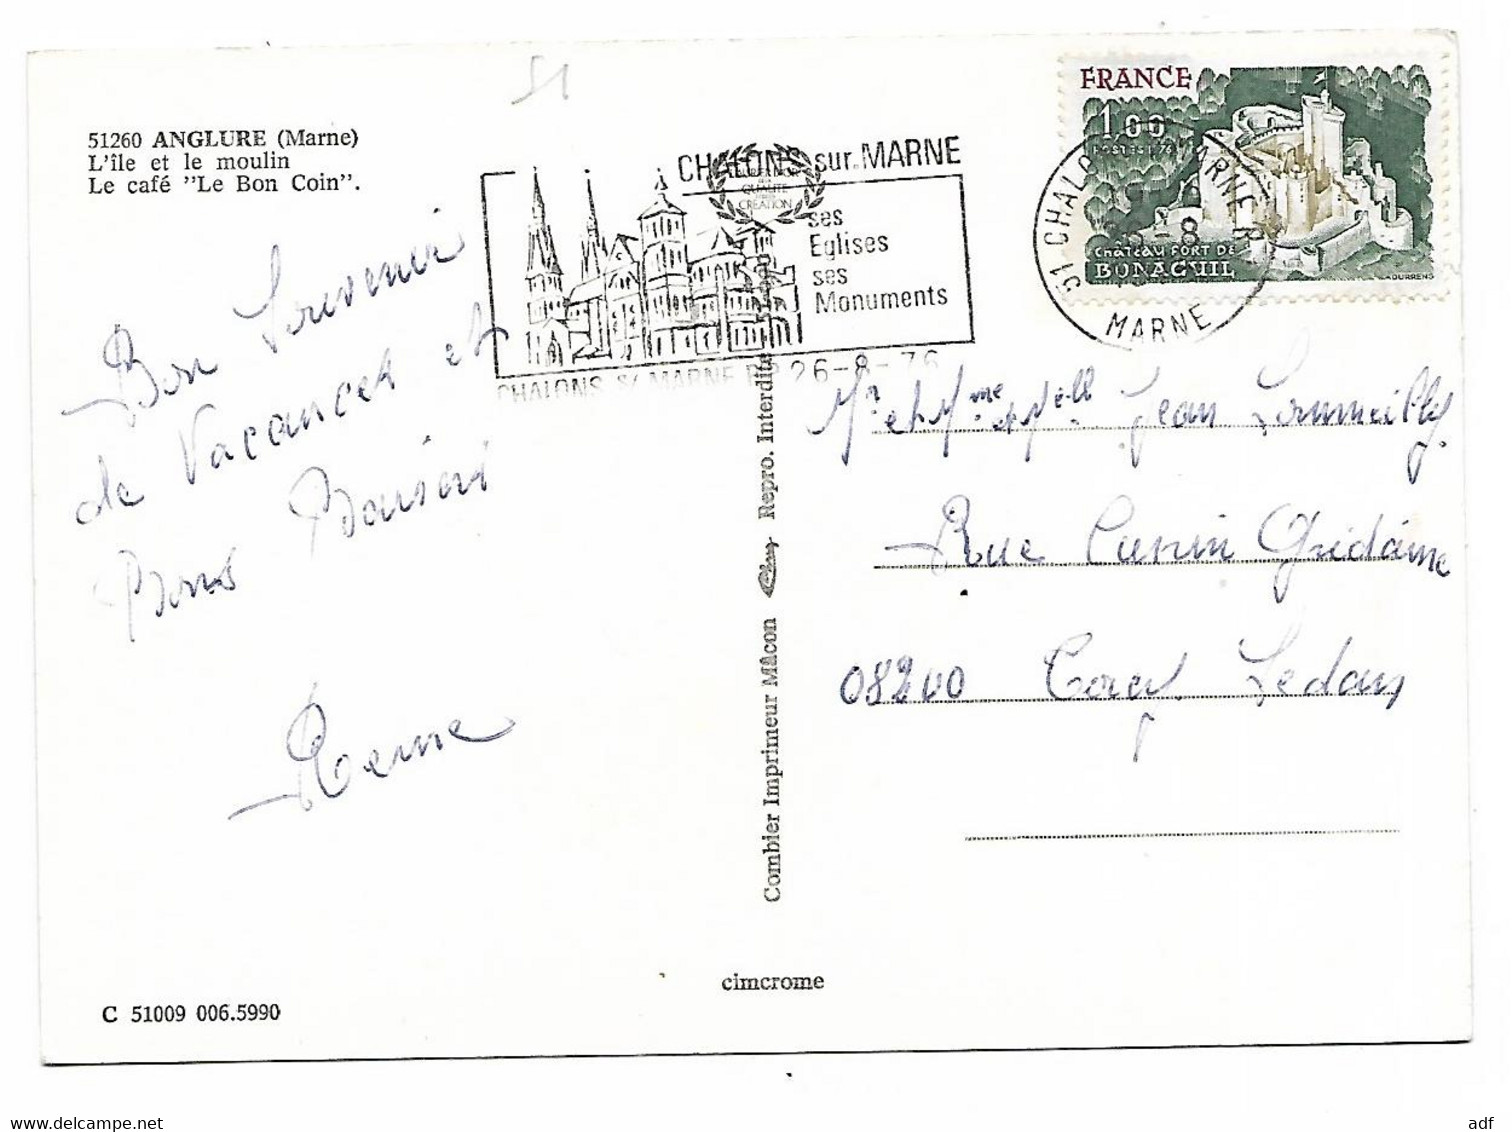 51
51260 ANGLURE (Marne)
L'île et le moulin
Le café "Le Bon Coin".
Bon Souvenir
de Vacances et
Bons Baisers
C 51009 006.5990
CHALONS sur MARNE
QUALITE
CREATION
ses
Eglises
ses
Monuments
CHALONS S/ MARNE R.P 26-8-76
Combier Imprimeur Mâcon Cim Repro. Interdite
cimcrome
FRANCE
1,00
POSTES 1976
Château FORT DE
BONAGUIL
DURRENS
51 CHALONS MARNE R.P
26-8
MARNE
Mr et Mme et Melle Jean
Rue Cunin Gridaine
08200 Sedan
adf
www.delcampe.net